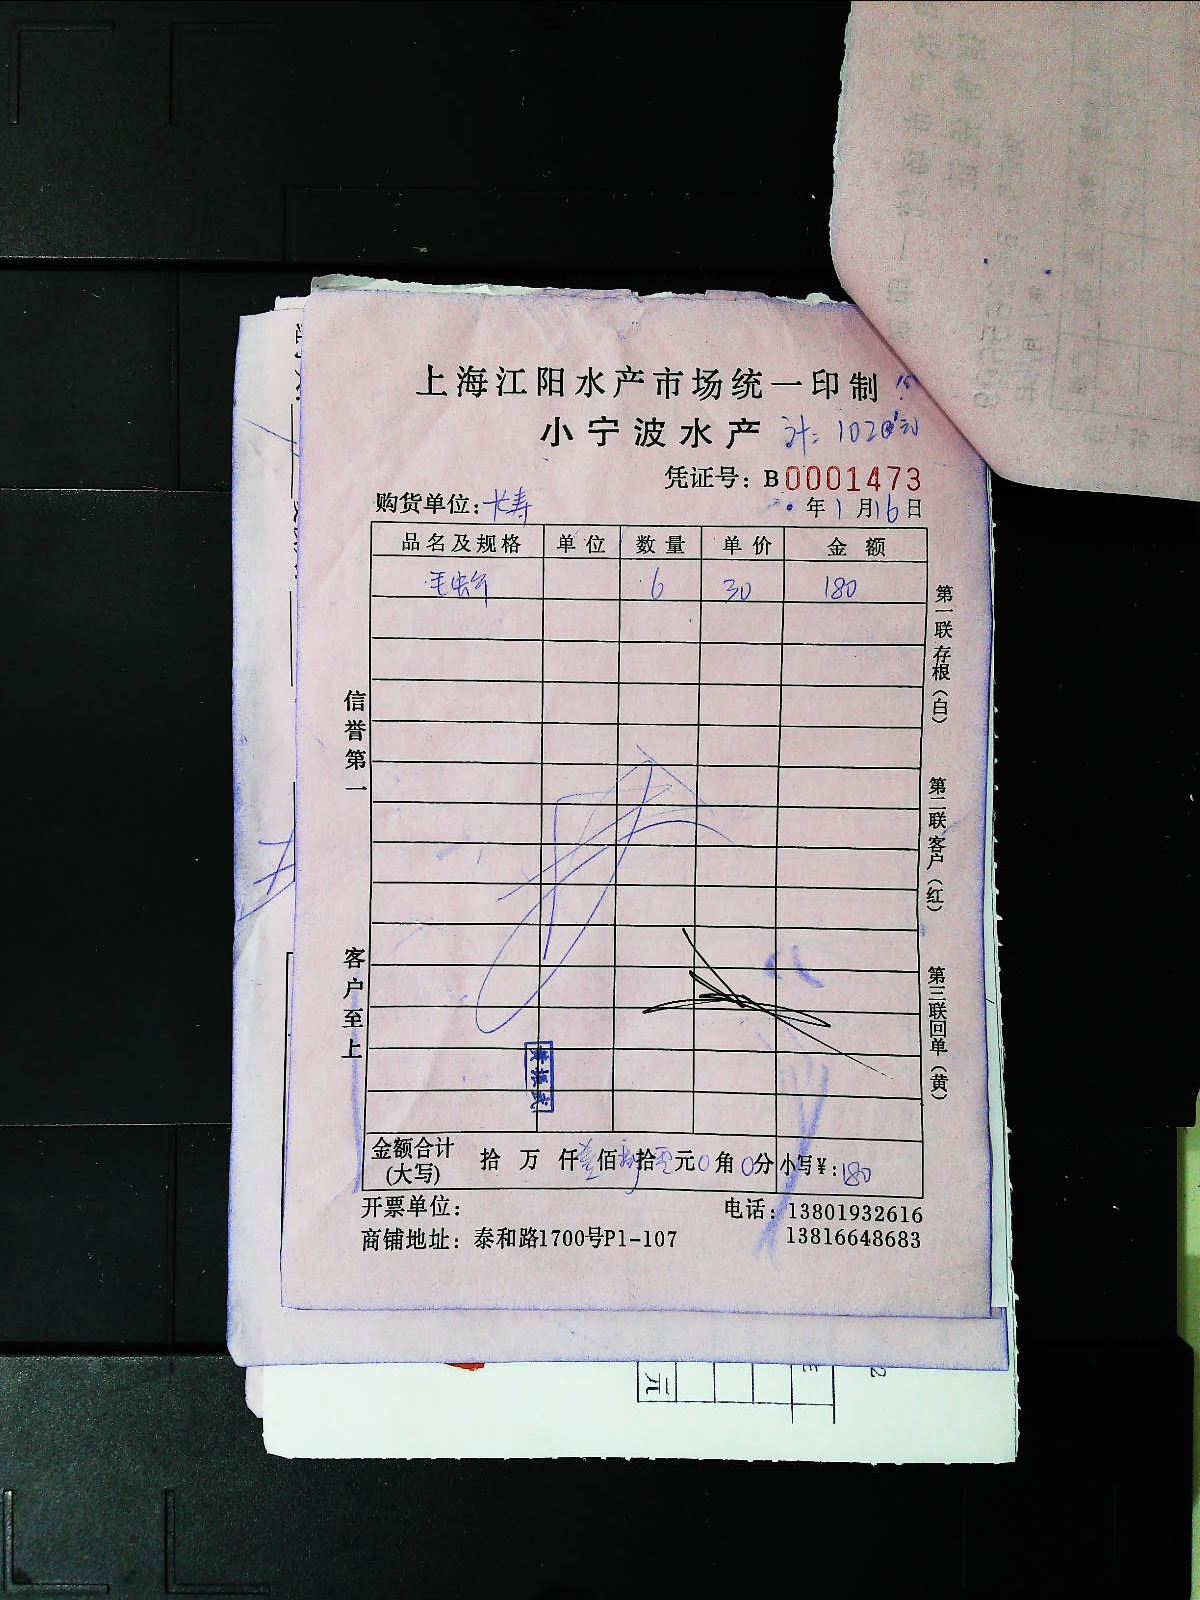 上海江阳水产市场统一印制
小宁波水产 计: 1020元
凭证号: B0001473
购货单位: 长寿 年1月16日
品名及规格 单位 数量 单价 金额
毛蚶 6 30 180
信誉第一
客户至上
第一联 存根(白)
第二联 客户(红)
第三联 回单(黄)
金额合计(大写) 拾 万 仟壹佰捌拾零元0角0分 小写¥:180
开票单位: 电话: 13801932616
商铺地址: 泰和路1700号P1-107 13816648683
元